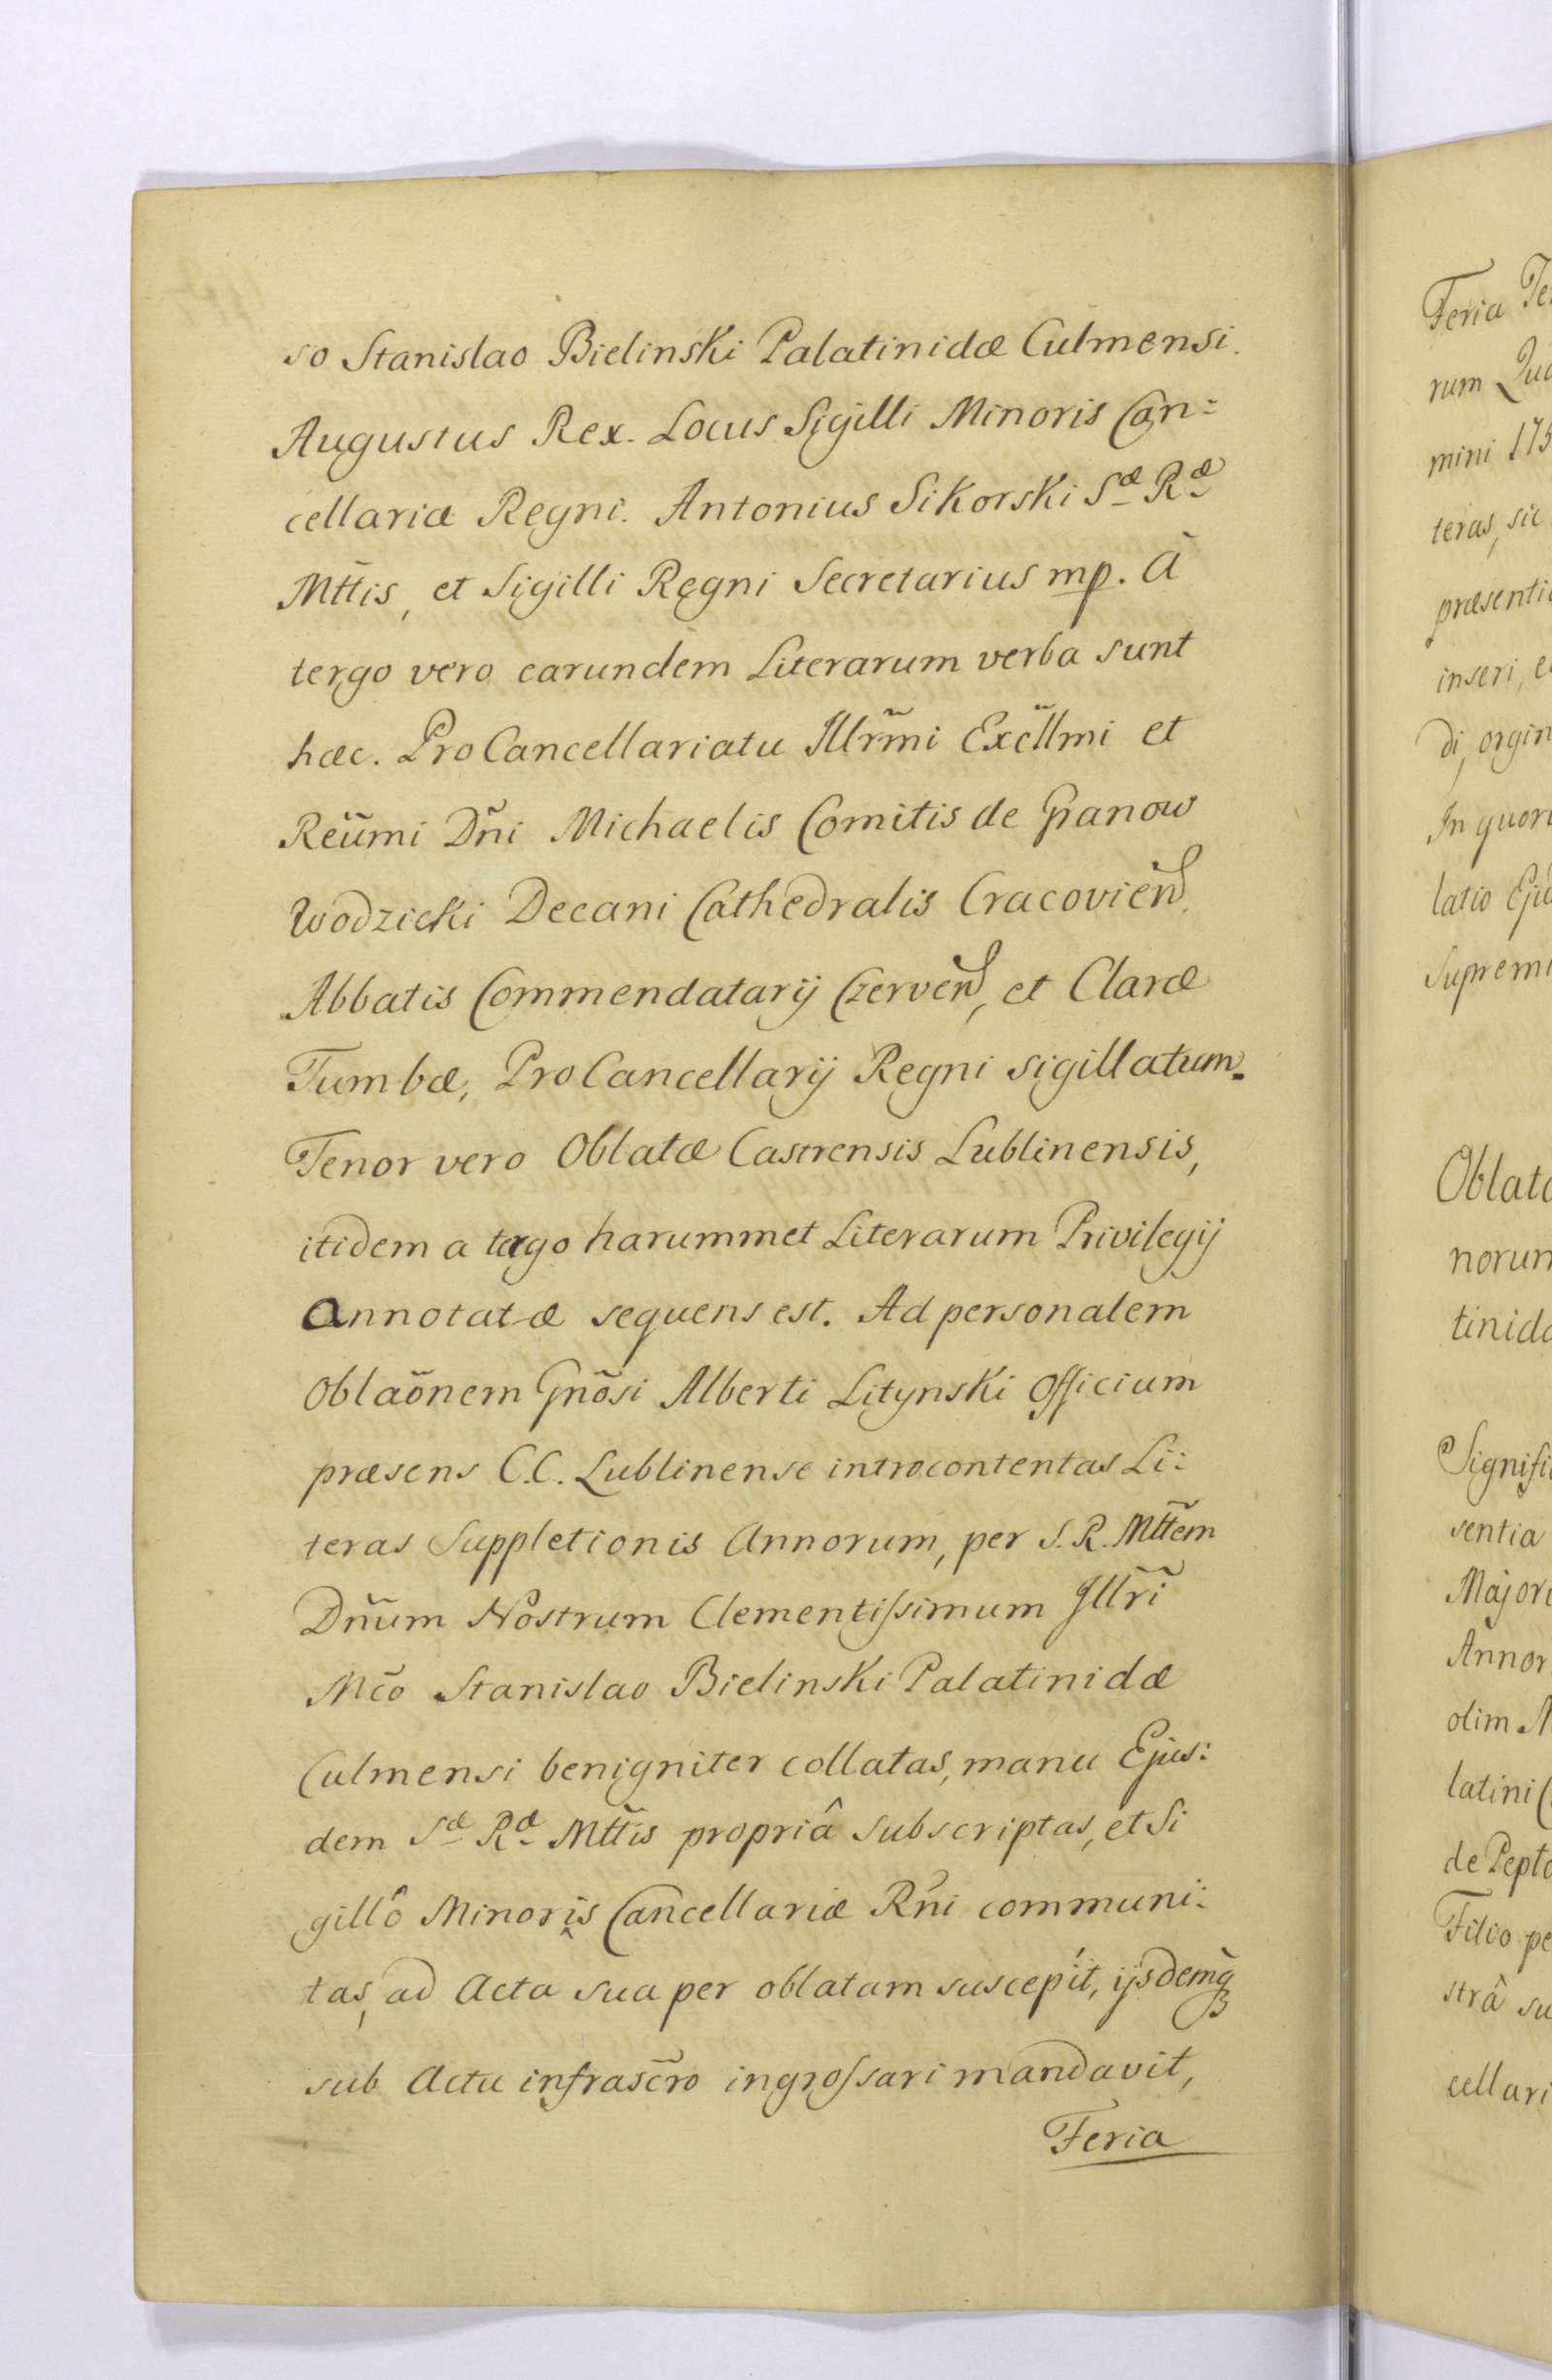 so Stanislao Bielinski Palatinidæ Culmensi.
Augustus Rex. Locus Sigilli Minoris Can:
cellariæ Regni. Antonius Sikorski Sæ Ræ
Mttis, et Sigilli Regni Secretarius mp. À
tergo vero earundem Literarum verba sunt
hæc. ProCancellariatu Illr̃mi Exc̃llmi et
Reũmi Dñi Michaelis Comitis de Granow
Wodzicki Decani Cathedralis Cracovien̄.
Abbatis Commendatarij Czerven̄, et Claræ
Tumbæ, ProCancellarij Regni sigillatum.
Tenor vero Oblatæ Castrensis Lublinensis,
itidem a tergo harummet Literarum Privilegij
Annotatæ sequens est. Ad personalem
Oblaõnem Gnõsi Alberti Litynski Officium
præsens C.C. Lublinense introcontentas Li:
teras Suppletionis Annorum, per S. R. Mttem
Dñum Nostrum Clementissimum Jllrĩ
Mc̃o Stanislao Bielinski Palatinidæ
Culmensi benigniter collatas, manu Ejus:
dem Sæ Ræ Mttis propriâ subscriptas, et Si
gillô Minoris Cancellariæ Rñi communi:
tas, ad Acta sua per oblatam suscepit, ijsdemq
sub Actu infrasc̃ro ingrossari mandavit,
Feria
Feria Te
rum Qua
mini 175
teras, sic
præsenti
inseri, e
di, orgin
In quor
latio Eju
Suprem
Oblat
norum
tinid
Signifi
sentia
Majori
Annor
olim
latini
de Pept
Filio pe
strâ su
cellari